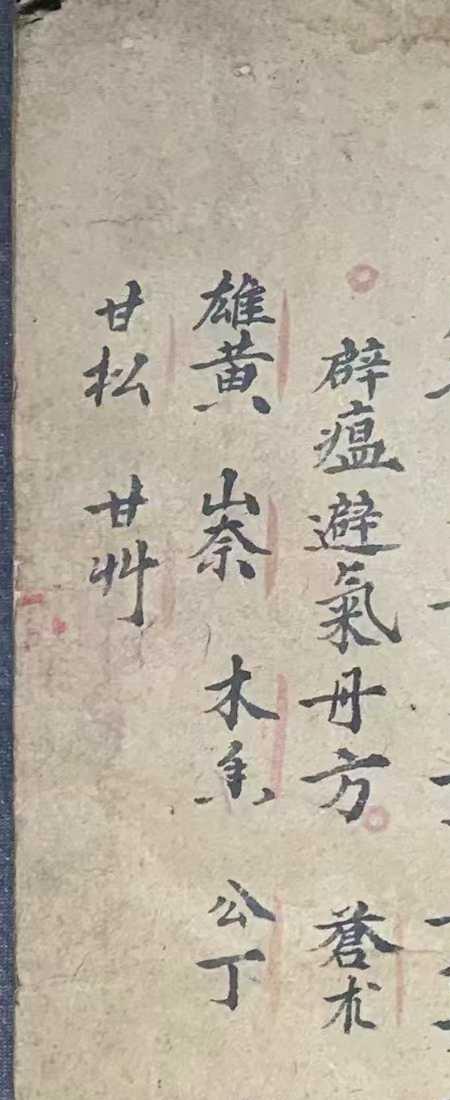 辟瘟避氣丹方 蒼朮
雄黄 山奈 木香 公丁
甘松 甘艸